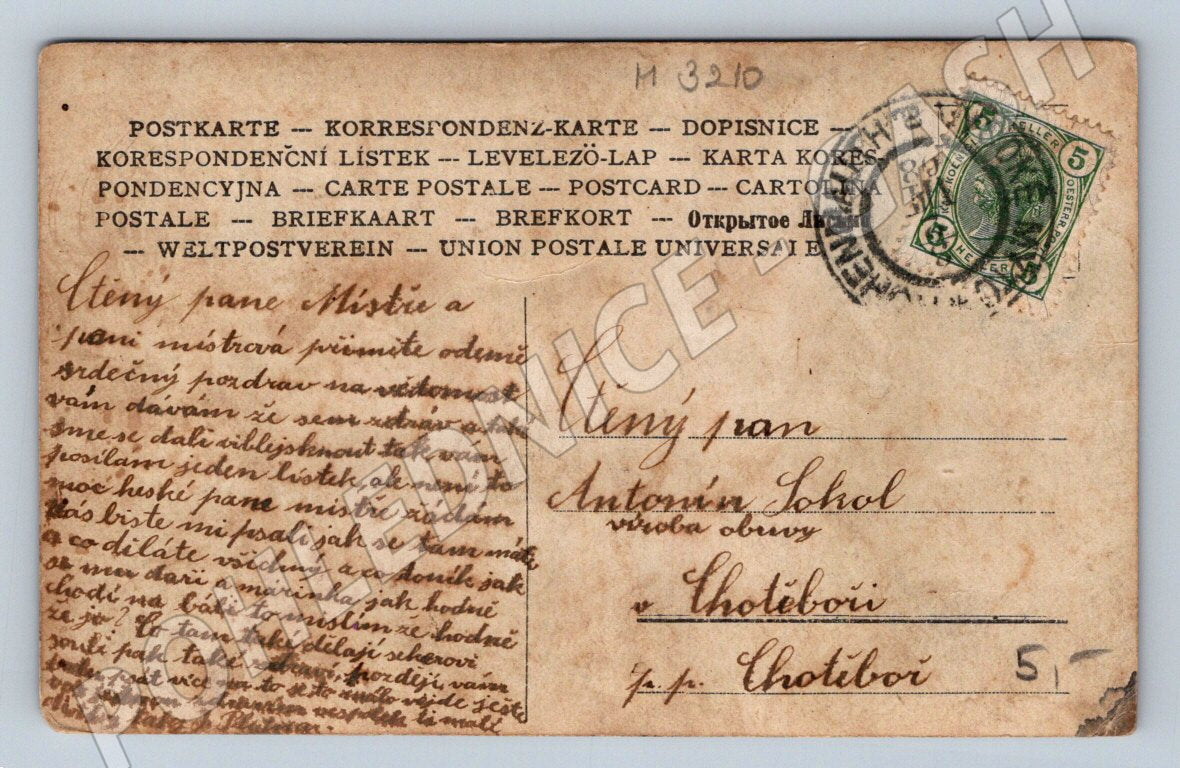 M 3210
POSTKARTE --- KORRESPONDENZ-KARTE --- DOPISNICE ---
KORESPONDENČNÍ LÍSTEK --- LEVELEZÖ-LAP --- KARTA KORES-
PONDENCYJNA --- CARTE POSTALE --- POSTCARD --- CARTOLINA
POSTALE --- BRIEFKAART --- BREFKORT --- Открытое
--- WELTPOSTVEREIN --- UNION POSTALE UNIVERSALE
5 HELLER 5
5 HELLER 5
Ctěný pane Místře a
paní místrová přimite odemě
srdečný pozdrav na vědomost
vám dávám že sem zdráv a
sme se dali viblejsknout tak vám
posílám jeden lístek ale není to
moc heské pane místře žádám
Vás biste mi psali jak se tam máte
a co diláte všichny a co toník jak
se mu daří a mařinka jak hodně
chodí na báli to mislim že hodně
že jo? Co tam také dělají sekerovi
jsouli pak také později vám
více na to
Ctěný pan
Antonín Sokol
víroba obuvy
v Chotěboři
p. p. Chotěboř
5,-
POHLEDNICE